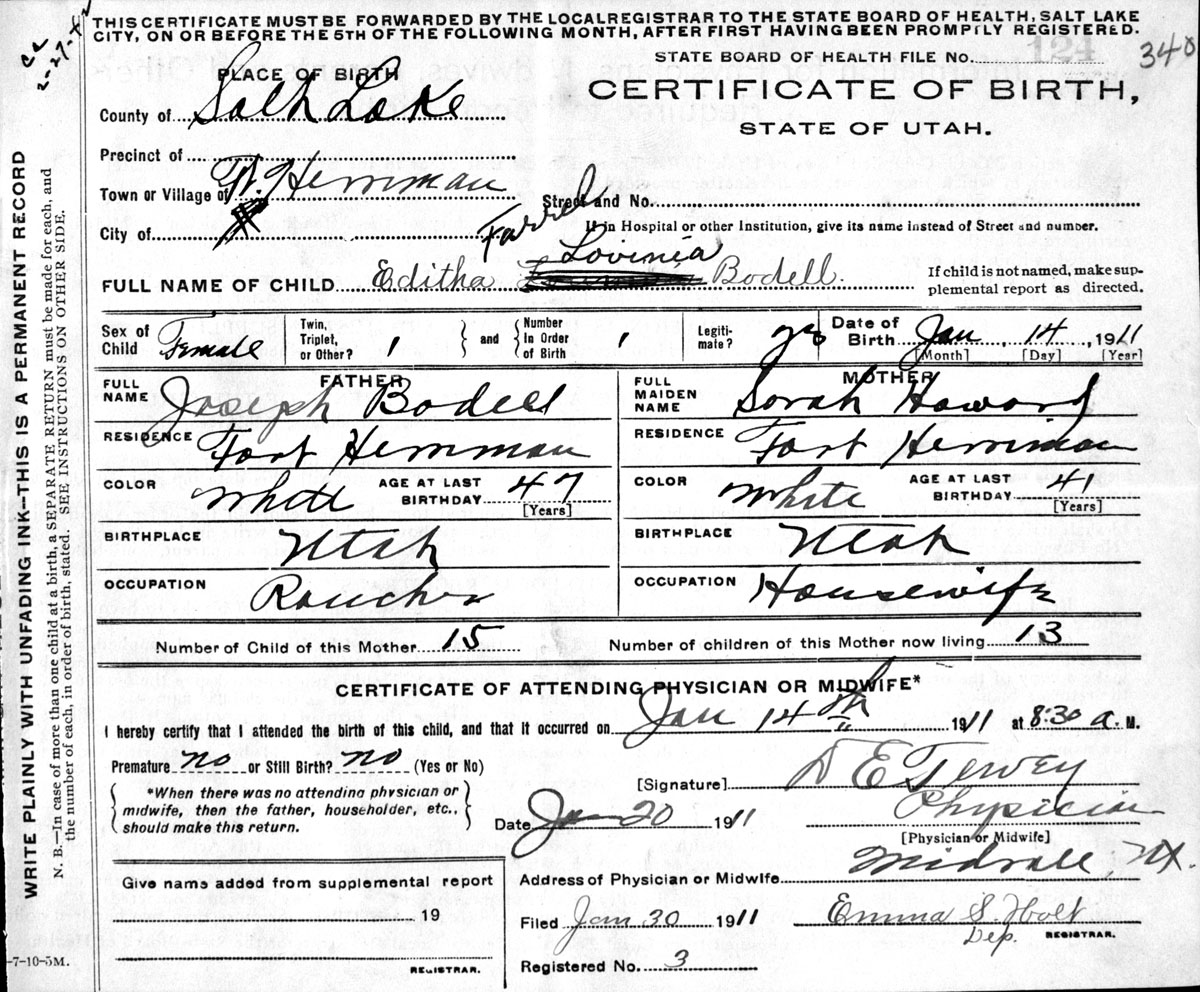 THIS CERTIFICATE MUST BE FORWARDED BY THE LOCAL REGISTRAR TO THE STATE BOARD OF HEALTH, SALT LAKE
CITY, ON OR BEFORE THE 5TH OF THE FOLLOWING MONTH, AFTER FIRST HAVING BEEN PROMPTLY REGISTERED.
STATE BOARD OF HEALTH FILE No. 124 340
PLACE OF BIRTH
CERTIFICATE OF BIRTH,
STATE OF UTAH.
County of Salt Lake
Precinct of
Town or Village of Ft. Herriman
Street and No.
City of
If in Hospital or other Institution, give its name instead of Street and number.
Farrel Lovinia
FULL NAME OF CHILD Editha Bodell
If child is not named, make sup-
plemental report as directed.
Sex of Child Female
Twin, Triplet, or Other? 1
and
Number In Order of Birth 1
Legiti-mate? yes
Date of Birth Jan 14, 1911
[Month] [Day] [Year]
FATHER
FULL NAME Joseph Bodell
RESIDENCE Fort Herriman
COLOR White AGE AT LAST BIRTHDAY 47
[Years]
BIRTHPLACE Utah
OCCUPATION Rancher
MOTHER
FULL MAIDEN NAME Sarah Howard
RESIDENCE Fort Herriman
COLOR White AGE AT LAST BIRTHDAY 41
[Years]
BIRTHPLACE Utah
OCCUPATION Housewife
Number of Child of this Mother 15 Number of children of this Mother now living 13
CERTIFICATE OF ATTENDING PHYSICIAN OR MIDWIFE*
I hereby certify that I attended the birth of this child, and that it occurred on Jan 14th 1911 at 8:30 a. M.
Premature no or Still Birth? no (Yes or No)
*When there was no attending physician or
midwife, then the father, householder, etc.,
should make this return.
[Signature] D E Tewey
Date Jan 20 1911 Physician
[Physician or Midwife]
Address of Physician or Midwife Midvale, Ut.
Give name added from supplemental report
19
REGISTRAR.
Filed Jan 30 1911 Emma S. Holt
Dep. REGISTRAR.
Registered No. 3
-7-10-5M.
WRITE PLAINLY WITH UNFADING INK—THIS IS A PERMANENT RECORD
N. B.—In case of more than one child at a birth, a SEPARATE RETURN must be made for each, and
the number of each, in order of birth, stated. SEE INSTRUCTIONS ON OTHER SIDE.